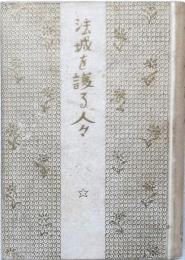 法城を護る人々
☆